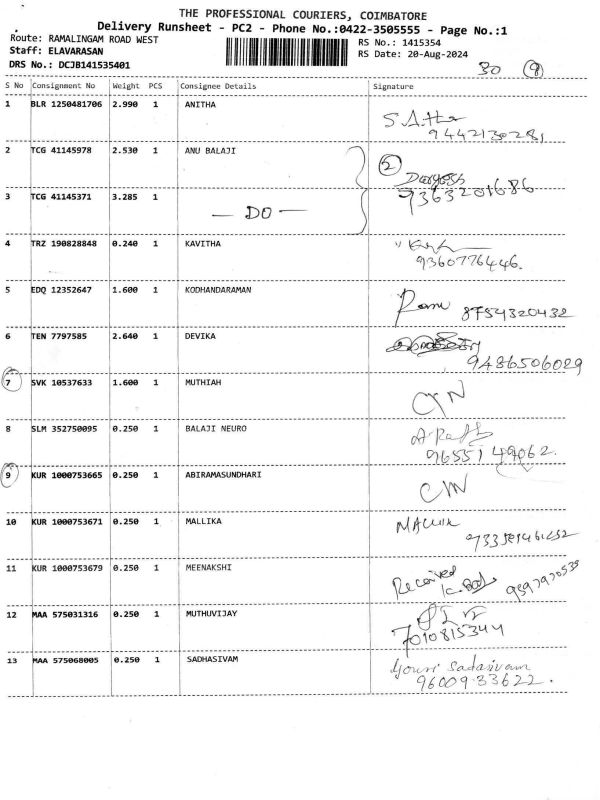 THE PROFESSIONAL COURIERS, COIMBATORE
Delivery Runsheet - PC2 - Phone No.:0422-3505555 - Page No.:1
Route: RAMALINGAM ROAD WEST
RS No.: 1415354
Staff: ELAVARASAN
RS Date: 20-Aug-2024
DRS No.: DCJB141535401
30 9
S No Consignment No Weight PCS Consignee Details Signature
1 BLR 1250481706 2.990 1 ANITHA
9442130281
2 TCG 41145978 2.530 1 ANU BALAJI 2
3 TCG 41145371 3.285 1 — DO — 9363201686
4 TRZ 190828848 0.240 1 KAVITHA
9360776446.
5 EDQ 12352647 1.600 1 KODHANDARAMAN
8754320432
6 TEN 7797585 2.640 1 DEVIKA
9486506029
7 SVK 10537633 1.600 1 MUTHIAH
8 SLM 352750095 0.250 1 BALAJI NEURO
9655149062.
9 KUR 1000753665 0.250 1 ABIRAMASUNDHARI
10 KUR 1000753671 0.250 1 MALLIKA
11 KUR 1000753679 0.250 1 MEENAKSHI Received
12 MAA 575031316 0.250 1 MUTHUVIJAY
7010815344
13 MAA 575068005 0.250 1 SADHASIVAM
Sadasivam
9600933622.